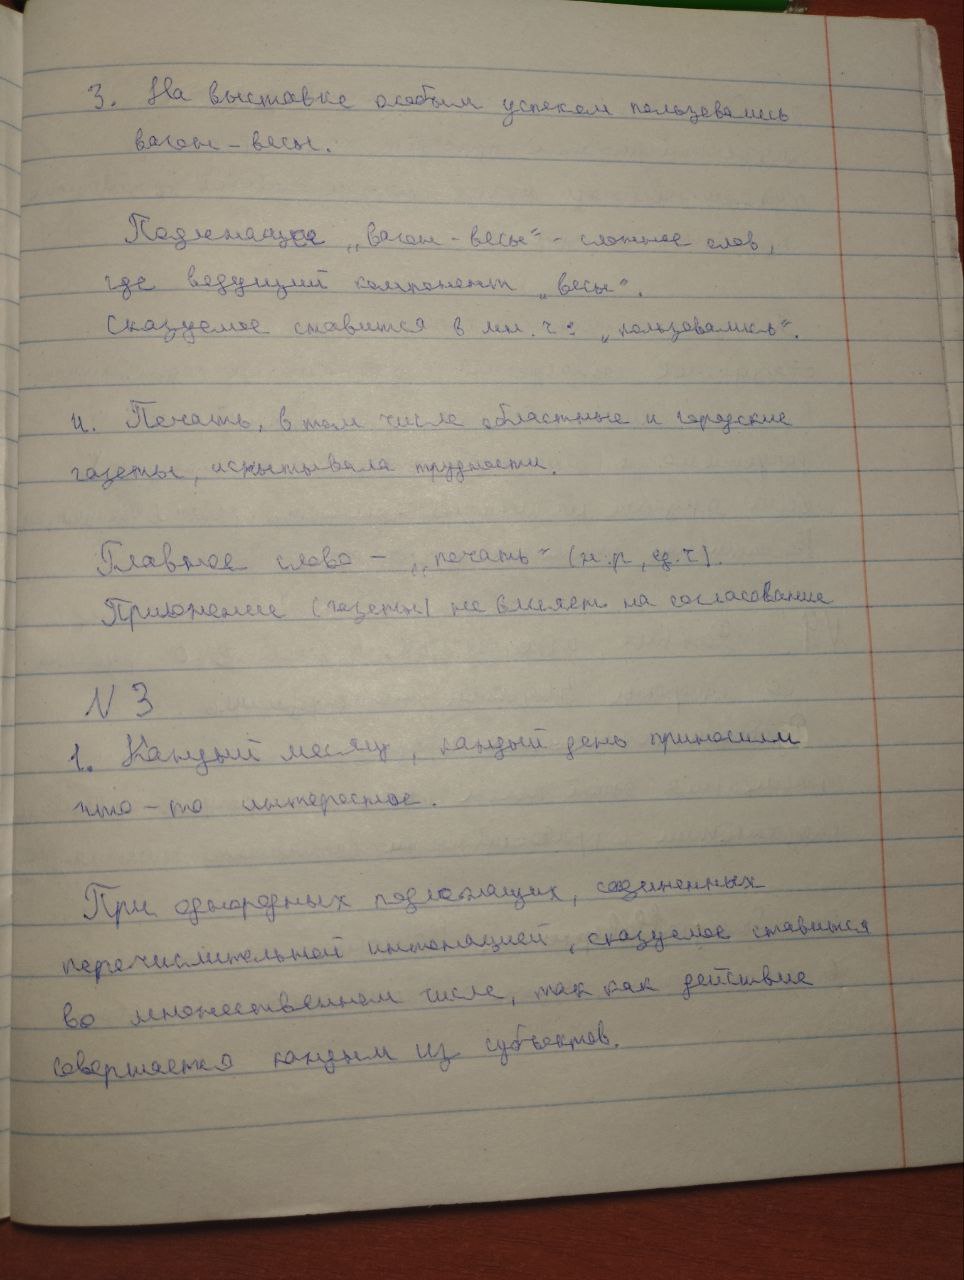 3. На выставке особым успехом пользовались
вагон-весы.
Подлежащее „вагон-весы“ - сложное слов,
где ведущий компонент „весы“.
Сказуемое ставится в мн. ч: „пользовались“.
4. Печать, в том числе областные и городские
газеты, испытывала трудности.
Главное слово - „печать“ (ж.р, ед.ч).
Приложение (газеты) не влияет на согласование
N 3
1. Каждый месяц, каждый день приносили
что-то интересное.
При однородных подлежащих, соединенных
перечислительной интонацией, сказуемое ставится
во множественном числе, так как действие
совершается каждым из субъектов.